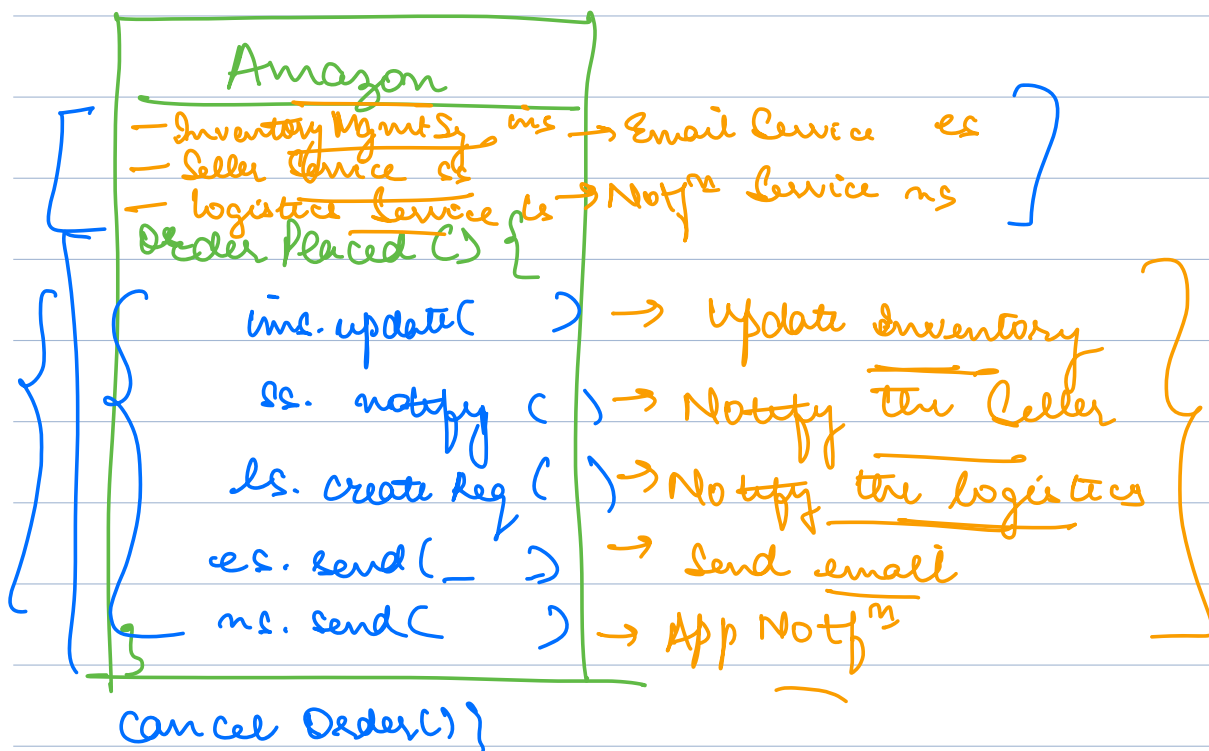 Amazon
— Inventory Mgmt Sy ims → Email Service es
— Seller Service ss
— logistics Service ls → Notfⁿ Service ns
Order Placed () {
ims. update( ) → Update Inventory
ss. notify ( ) → Notify the Celler
ls. create Req ( ) → Notify the logistics
es. send( _ ) → Send email
ns. send( ) → App Notfⁿ
}
Cancel Order() }